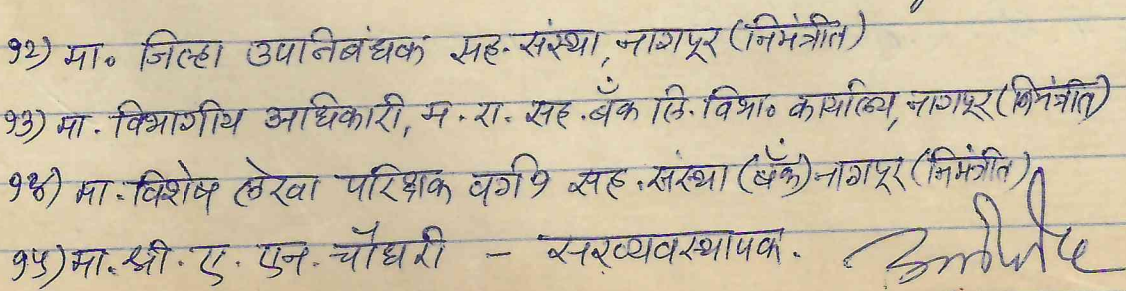 १२) मा० जिल्हा उपनिबंधक सह. संस्था, नागपूर (निमंत्रीत)
१३) मा. विभागीय आधिकारी, म. रा. सह. बँक लि. विभा० कार्यालय, नागपूर (निमंत्रीत)
१४) मा. विशेष लेखा परिक्षक वर्ग १ सह. संस्था (बँक) नागपूर (निमंत्रीत)
१५) मा. श्री. ए. एन. चौधरी - सरव्यवस्थापक.